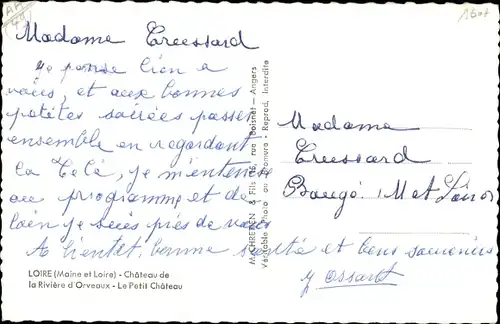 Madame Creessard
je pense bien a
vous, et aux bonnes
petites soirées passer
ensemble en regardant
la Télé, je m'interesse
au programme et de
loin je suis près de vous
A bientot, bonne santé et bons souvenirs
Y Ossart
Madame
Creessard
Baugé (M et Loire)
LOIRE (Maine et Loire) - Château de
la Rivière d'Orveaux - Le Petit Château
& Fils (16, rue Boisnet - Angers
Véritable Photo au Bromure : Reprod. Interdite